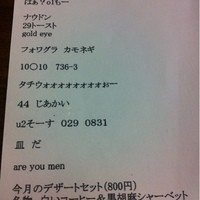 はぁ？ｏｆもー
ナウドン
29トースト
gold eye
フォワグラ カモネギ
10○10 736-3
タチウォォォォォォォォぉー
44 じあかい
u2そーす 029 0831
皿 だ
are you men
今月のデザートセット(800円)
名物 白いコーヒー&黒胡麻シャーベット